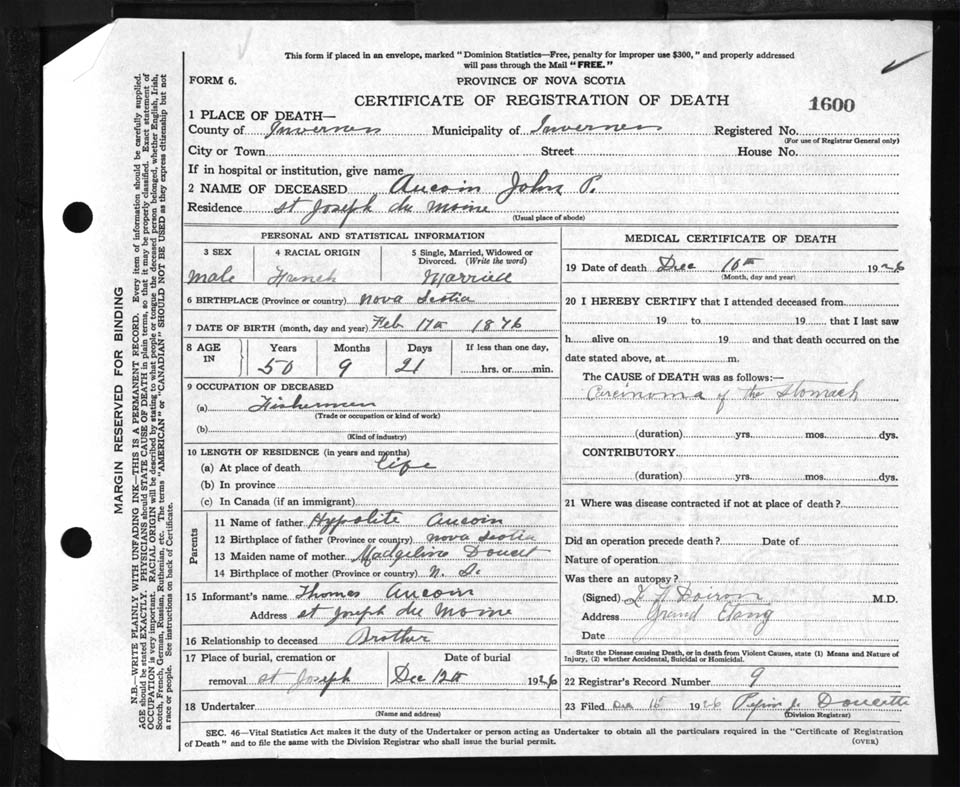 This form if placed in an envelope, marked "Dominion Statistics—Free, penalty for improper use $300," and properly addressed
will pass through the Mail "FREE."
FORM 6.
PROVINCE OF NOVA SCOTIA
CERTIFICATE OF REGISTRATION OF DEATH
1600
1 PLACE OF DEATH—
County of Inverness Municipality of Inverness Registered No.
(For use of Registrar General only)
City or Town Street House No.
If in hospital or institution, give name
2 NAME OF DECEASED Aucoin John P.
Residence St Joseph du Moine
(Usual place of abode)
PERSONAL AND STATISTICAL INFORMATION
3 SEX 4 RACIAL ORIGIN 5 Single, Married, Widowed or
Divorced. (Write the word)
Male French Married
6 BIRTHPLACE (Province or country) Nova Scotia
7 DATE OF BIRTH (month, day and year) Feb 17th 1876
8 AGE IN Years Months Days If less than one day,
50 9 21 hrs. or min.
9 OCCUPATION OF DECEASED
(a) Fishermen
(Trade or occupation or kind of work)
(b)
(Kind of industry)
10 LENGTH OF RESIDENCE (in years and months)
(a) At place of death life
(b) In province
(c) In Canada (if an immigrant)
Parents
11 Name of father Hypolite Aucoin
12 Birthplace of father (Province or country) Nova Scotia
13 Maiden name of mother Madgeline Doucet
14 Birthplace of mother (Province or country) N. S.
15 Informant's name Thomas Aucoin
Address St Joseph du Moine
16 Relationship to deceased Brother
17 Place of burial, cremation or Date of burial
removal St Joseph Dec 12th 1926
18 Undertaker
(Name and address)
MEDICAL CERTIFICATE OF DEATH
19 Date of death Dec 10th 1926
(Month, day and year)
20 I HEREBY CERTIFY that I attended deceased from
19 to 19 that I last saw
h alive on 19 and that death occurred on the
date stated above, at m.
The CAUSE of DEATH was as follows:—
Carcinoma of the Stomach
(duration) yrs. mos. dys.
CONTRIBUTORY
(duration) yrs. mos. dys.
21 Where was disease contracted if not at place of death?
Did an operation precede death? Date of
Nature of operation
Was there an autopsy?
(Signed) M.D.
Address Grand Etang
Date
State the Disease causing Death, or in death from Violent Causes, state (1) Means and Nature of
Injury, (2) whether Accidental, Suicidal or Homicidal.
22 Registrar's Record Number 9
23 Filed Dec 15 1926 Doucette
(Division Registrar)
SEC. 46—Vital Statistics Act makes it the duty of the Undertaker or person acting as Undertaker to obtain all the particulars required in the "Certificate of Registration
of Death" and to file the same with the Division Registrar who shall issue the burial permit.
(OVER)
MARGIN RESERVED FOR BINDING
N.B.—WRITE PLAINLY WITH UNFADING INK—THIS IS A PERMANENT RECORD. Every item of information should be carefully supplied.
AGE should be stated EXACTLY. PHYSICIANS should STATE CAUSE OF DEATH in plain terms, so that it may be properly classified. Exact statement of
OCCUPATION is very important. RACIAL ORIGIN will be described by stating to what people or tongue the deceased person belonged, whether English, Irish,
Scotch, French, German, Russian, Ruthenian, etc. The terms "AMERICAN" or "CANADIAN" SHOULD NOT BE USED as they express citizenship but not
a race or people. See instructions on back of Certificate.